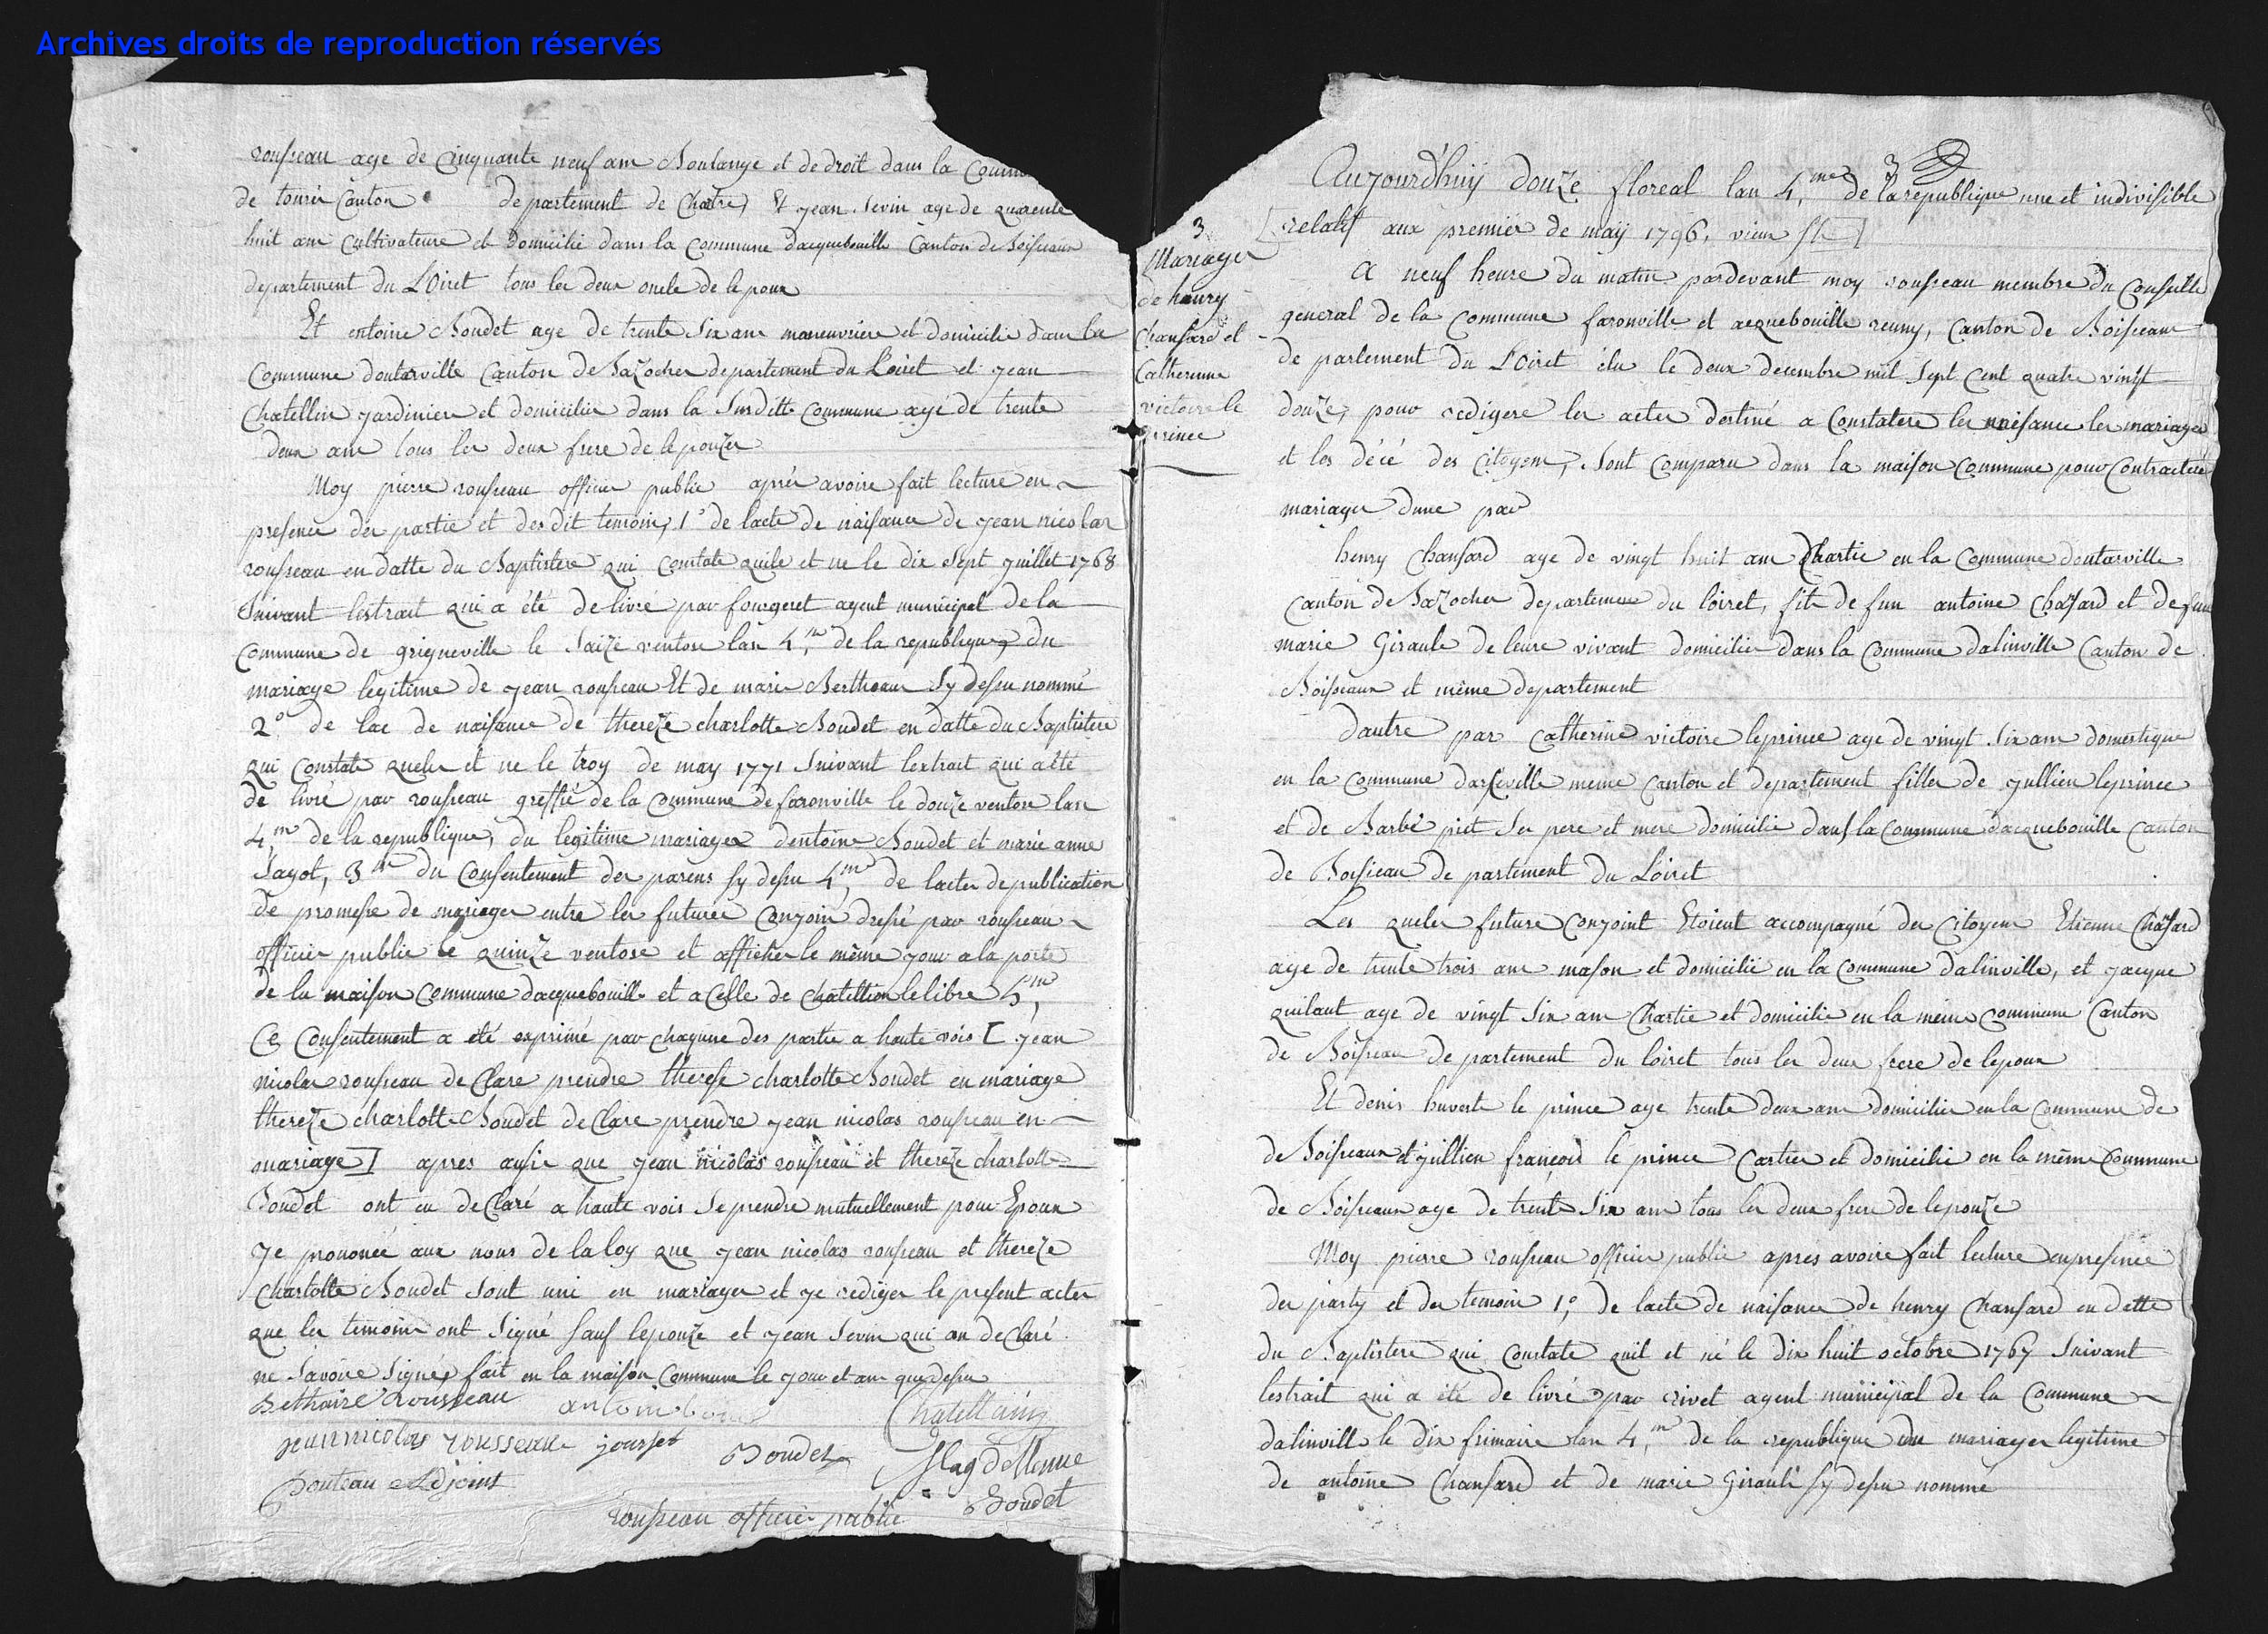 Archives droits de reproduction réservés
rousseau age de Cinquante neuf ans Boulange et de droit dans la
de toury Canton departement de Chatre, Et jean Sevin age de quarente
huit ans Cultivateure et domicilié dans la Commune dacquebouille Canton de Boisseaux
departement du LOiret tous les deux oncle de lepoux
Et entoine Boudet age de trente Six ans maneuvrier et domicilie dans la
Commune doutarville Canton de Bazoches departement du Loiret et jean
Chatellin jardinier et domicilie dans la Susditte Commune agé de trente
deux ans tous les deux frere de lepouze
Moy pierre rousseau officier public après avoire fait lecture en
presence des partie et des dit temoins, 1° de lacte de naisance de jean nicolas
rousseau en datte du Baptistere qui Constate quile et ne le dix Sept juillet 1768
Suivant lestrait qui a été delivré par fougeret agent municipal de la
Commune de grigneville le Saize ventose lan 4,me de la republique du
mariage legitime de jean rousseau Et de marie Bertheau Sy desu nommé
2° de lac de naisance de thereze charlotte Boudet en datte du Baptistere
qui Constate quelle et ne le troy de may 1771 Suivant lextrait qui a été
de livré par rousseau greffié de la Commune de faronville le douze ventose lan
4,me de la republique, du legitime mariage dentoine Boudet et marie anne
Sagot, 3me du Consentement des parens sy desu 4me, de lacte de publication
de promesse de mariage entre les futures Conjoin dressé par rousseau
officier public le quinze ventose et afficher le même jour a la porte
de la maison Commune dacquebouille et a Celle de Chatillion le libre 5me,
Ce Consentement a été exprimé par chaqune des partie a haute vois [ jean
nicolas rousseau de Clare prendre therese charlotte Boudet en mariage
thereze charlotte Boudet de Clare prendre jean nicolas rousseau en
mariage ] apres ausie que jean nicolas rousseau et thereze charlotte
Boudet ont eu de Claré a haute vois Se prendre mutuellement pour Epoux
je prononcé aux nous de la loy que jean nicolas rousseau et thereze
Charlotte Boudet sont uni en mariage et je rediger le present acte
que les temoins ont Signé sauf lepouze et jean Sevin qui on de Claré
ne Savoire Signé, fait en la maison Commune le jour et an que desu
Bethaire rousseau antoine boudet Chatellain
jean nicolas rousseau jousset Boudet Magdellenne
Pouteau adjoint Boudet
rousseau officier public
3
3
Mariage
de henry
Chansard et
Catherinne
victoire le
prince
Aujourdhuy douze floreal lan 4,me de la republique une et indivisible
[ relatif aux premier de may 1796, vieux stil ]
A neuf heure du matin pardevant moy rousseau membre du Conseille
general de la Commune faronville et acquebouille reuny, Canton de Boisseaux
de partement du LOiret élu le deux decembre mil Sept Cent quatre vingt
douze, pour redigere les actes destiné a Constatere les naisance les mariages
et les décé des Citoyens, Sont Comparu dans la maison Commune pour Contractere
mariage dune par
henry Chansard age de vingt huit ans Chartie en la Commune doutarville
Canton de Bazoches departement du loiret, fils de feu antoine Chasard et de feu
marie Giraule de leure vivant domicilie dans la Commune dalinville Canton de
Boisseaux et même departement
dautre par Catherine victoire leprince age de vingt Six ans domestique
en la Commune darseville meme Canton et departement fille de jullien leprince
et de Barbe piet Ses pere et mere domicilié dans la Commune dacquebouille Canton
de Boisseau de partement du Loiret
Les queles future Conjoint Etoient accompagné des Citoyens Etienne Chasard
age de trente trois ans mason et domicilié en la Commune dalinville, et jacque
quilaut age de vingt Six ans Chartie et domicilié en la meme Commune Canton
de Boisseau de partement du loiret tous les deux frere de lepoux
Et denis huverte le prince age trente deux ans domicilié en la Commune de
de Boisseaux et jullien françois le prince Cartier et domicilié en la même Commune
de Boisseaux age de trente Six ans tous les deux frere de lepouze
Moy pierre rousseau officier public apres avoire fait lecture en presence
des party et des temoin 1°, de lacte de naisance de henry Chansard en dette
du Baptistere qui Constate quil et né le dix huit octobre 1767 Suivant
lestrait qui a été de livré par rivet agent municipal de la Commune
dalinville le dix frimaire lan 4,me de la republique du mariage legitime
de antoine Chansard et de marie Girault sy desu nommé